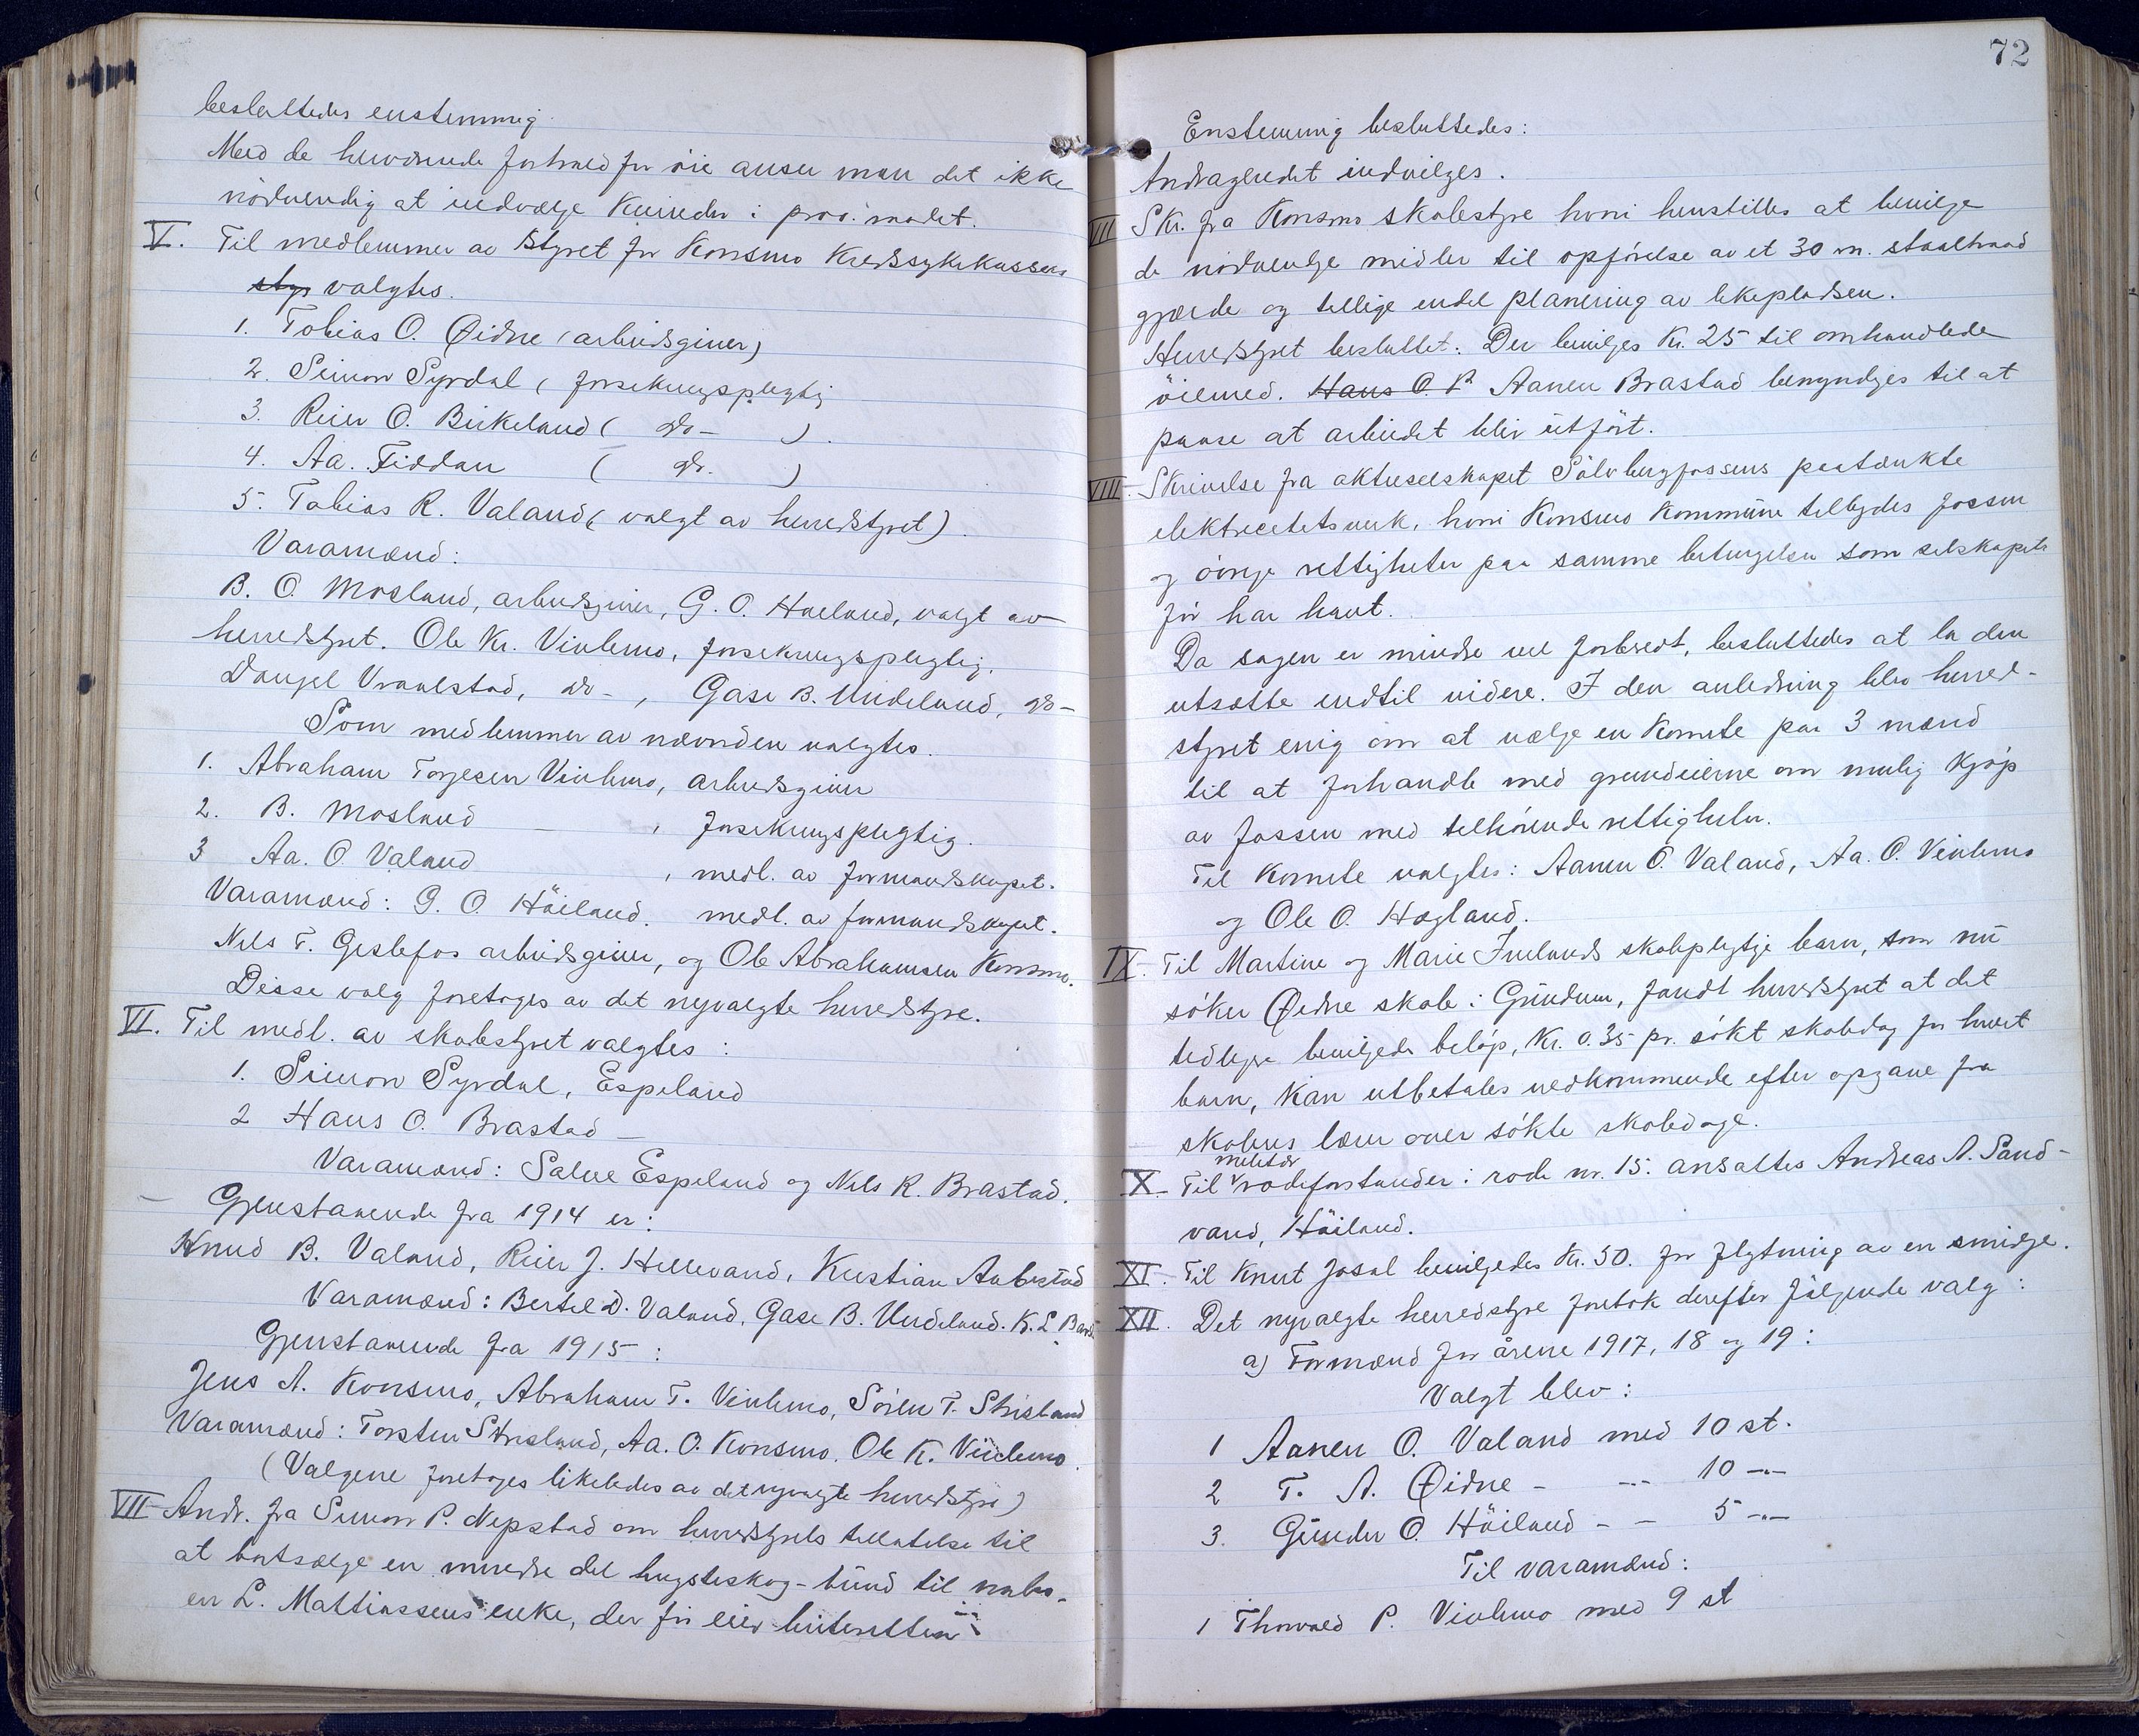 besluttedes enstemmig.
Med de herværende forhold for øie anser man det ikke
nödvendig at indvælge kvinder i prov. raadet.
V. Til medlemmer av styret for Konsmo Kredssykekasses
styr valgtes.
1. Tobias O. Øidne (arbeidsgiver)
2. Simon Syrdal (forsikringspligtig
3. Reier O. Birkeland ( do - ).
4. Aa. Fiddan ( do. )
5. Tobias R. Valand (valgt av herredstyret).
Varamænd:
B. O. Mosland, arbeidsgiver, G. O. Høiland, valgt av
herredstyret. Ole Kr. Vivlemo, forsikringspligtig.
Daugel Vraalstad, do -, Gase B. Undeland, do -
Som medlemmer av nævnden valgtes.
1. Abraham Torjesen Vivlemo, arbeidsgiver
2. B. Mosland - , forsikringspligtig.
3 Aa. O. Valand , medl. av formandskapet.
Varamænd: G. O. Höiland. medl. av formandskapet.
Nils T. Geslefos arbeidsgiver, og Ole Abrahamsen Konsmo.
Disse valg foretoges av det nyvalgte herredstyre.
VI. Til medl. av skolestyret valgtes:
1. Simon Syrdal, Espeland
2 Hans O. Brastad -
Varamænd: Salve Espeland og Nils R. Brastad.
- Gjenstaaende fra 1914 er:
Knud B. Valand, Reier J. Hellevand, Kristian Aabestad
Varamænd: Bertel D. Valand, Gase B. Undeland. K. L.
Gjenstaaende fra 1915:
Jens A. Konsmo, Abraham T. Vivlemo, Sören T. Strisland
Varamænd: Torsten Strisland, Aa. O. Konsmo. Ole K. Vivlemo.
(Valgene foretoges likeledes av det nyvalgte herredstyre)
VII Andr. fra Simon P. Nepstad om herredstyrets tillatelse til
at bortsælge en mindre del hugsteskog-bund til nabo-
en L. Mattiassens enke, der før eier beiteretten
72
Enstemmig besluttedes:
Andragendet indvilges.
VII Skr. fra Konsmo skolestyre hvori henstilles at bevilge
de nödvendge midler til opførelse av et 30 m. staaltraad
gjærde og tillige endel planering av lekepladsen.
Herredstyret besluttet: Der bevilges Kr. 25 til omhandlede
öiemed. Hans O. B Aanen Brastad bemyndges til at
paase at arbeidet blir utført.
VIII. Skrivelse fra aktieselskapet Sölvbergfossens paatænkte
elektricitetsverk, hvori Konsmo Kommune tilbydes fossen
og övrige rettigheter paa samme betingelser som selskapet
før har havt.
Da sagen er mindre vel forberedt, besluttedes at la den
utsætte indtil videre. I den anledning blev herred-
styret enig om at vælge en komite paa 3 mænd
til at forhandle med grundeierne om mulig kjøp
av fossen med tilhørende rettigheter.
Til komite valgtes: Aanen O. Valand, Aa. O. Vivlemo
og Ole O. Hægland.
IX. Til Martine og Marie Ivelands skolepligtige barn, som nu
søker Øidne skole i Grindum, fandt herredstyret at det
tidligere bevilgede beløp, Kr. 0.35 pr. søkt skoledag for hvert
barn, kan utbetales vedkommende efter opgave fra
skolens lærer over søkte skoledage.
X. Til militær rodeforstander i rode nr. 15. ansattes Andreas A. Sand-
vand, Höiland.
XI. Til Knut Josal bevilgedes Kr. 50. for flytning av en smidje.
XII. Det nyvalgte herredstyre foretok derefter følgende valg:
a) Formænd for årene 1917, 18 og 19:
Valgt blev:
1 Aanen O. Valand med 10 st.
2 T. A. Øidne - --- 10 -"-
3. Gunder O. Höiland - - 5 -"-
Til varamænd:
1 Thorvald P. Vivlemo med 9 st